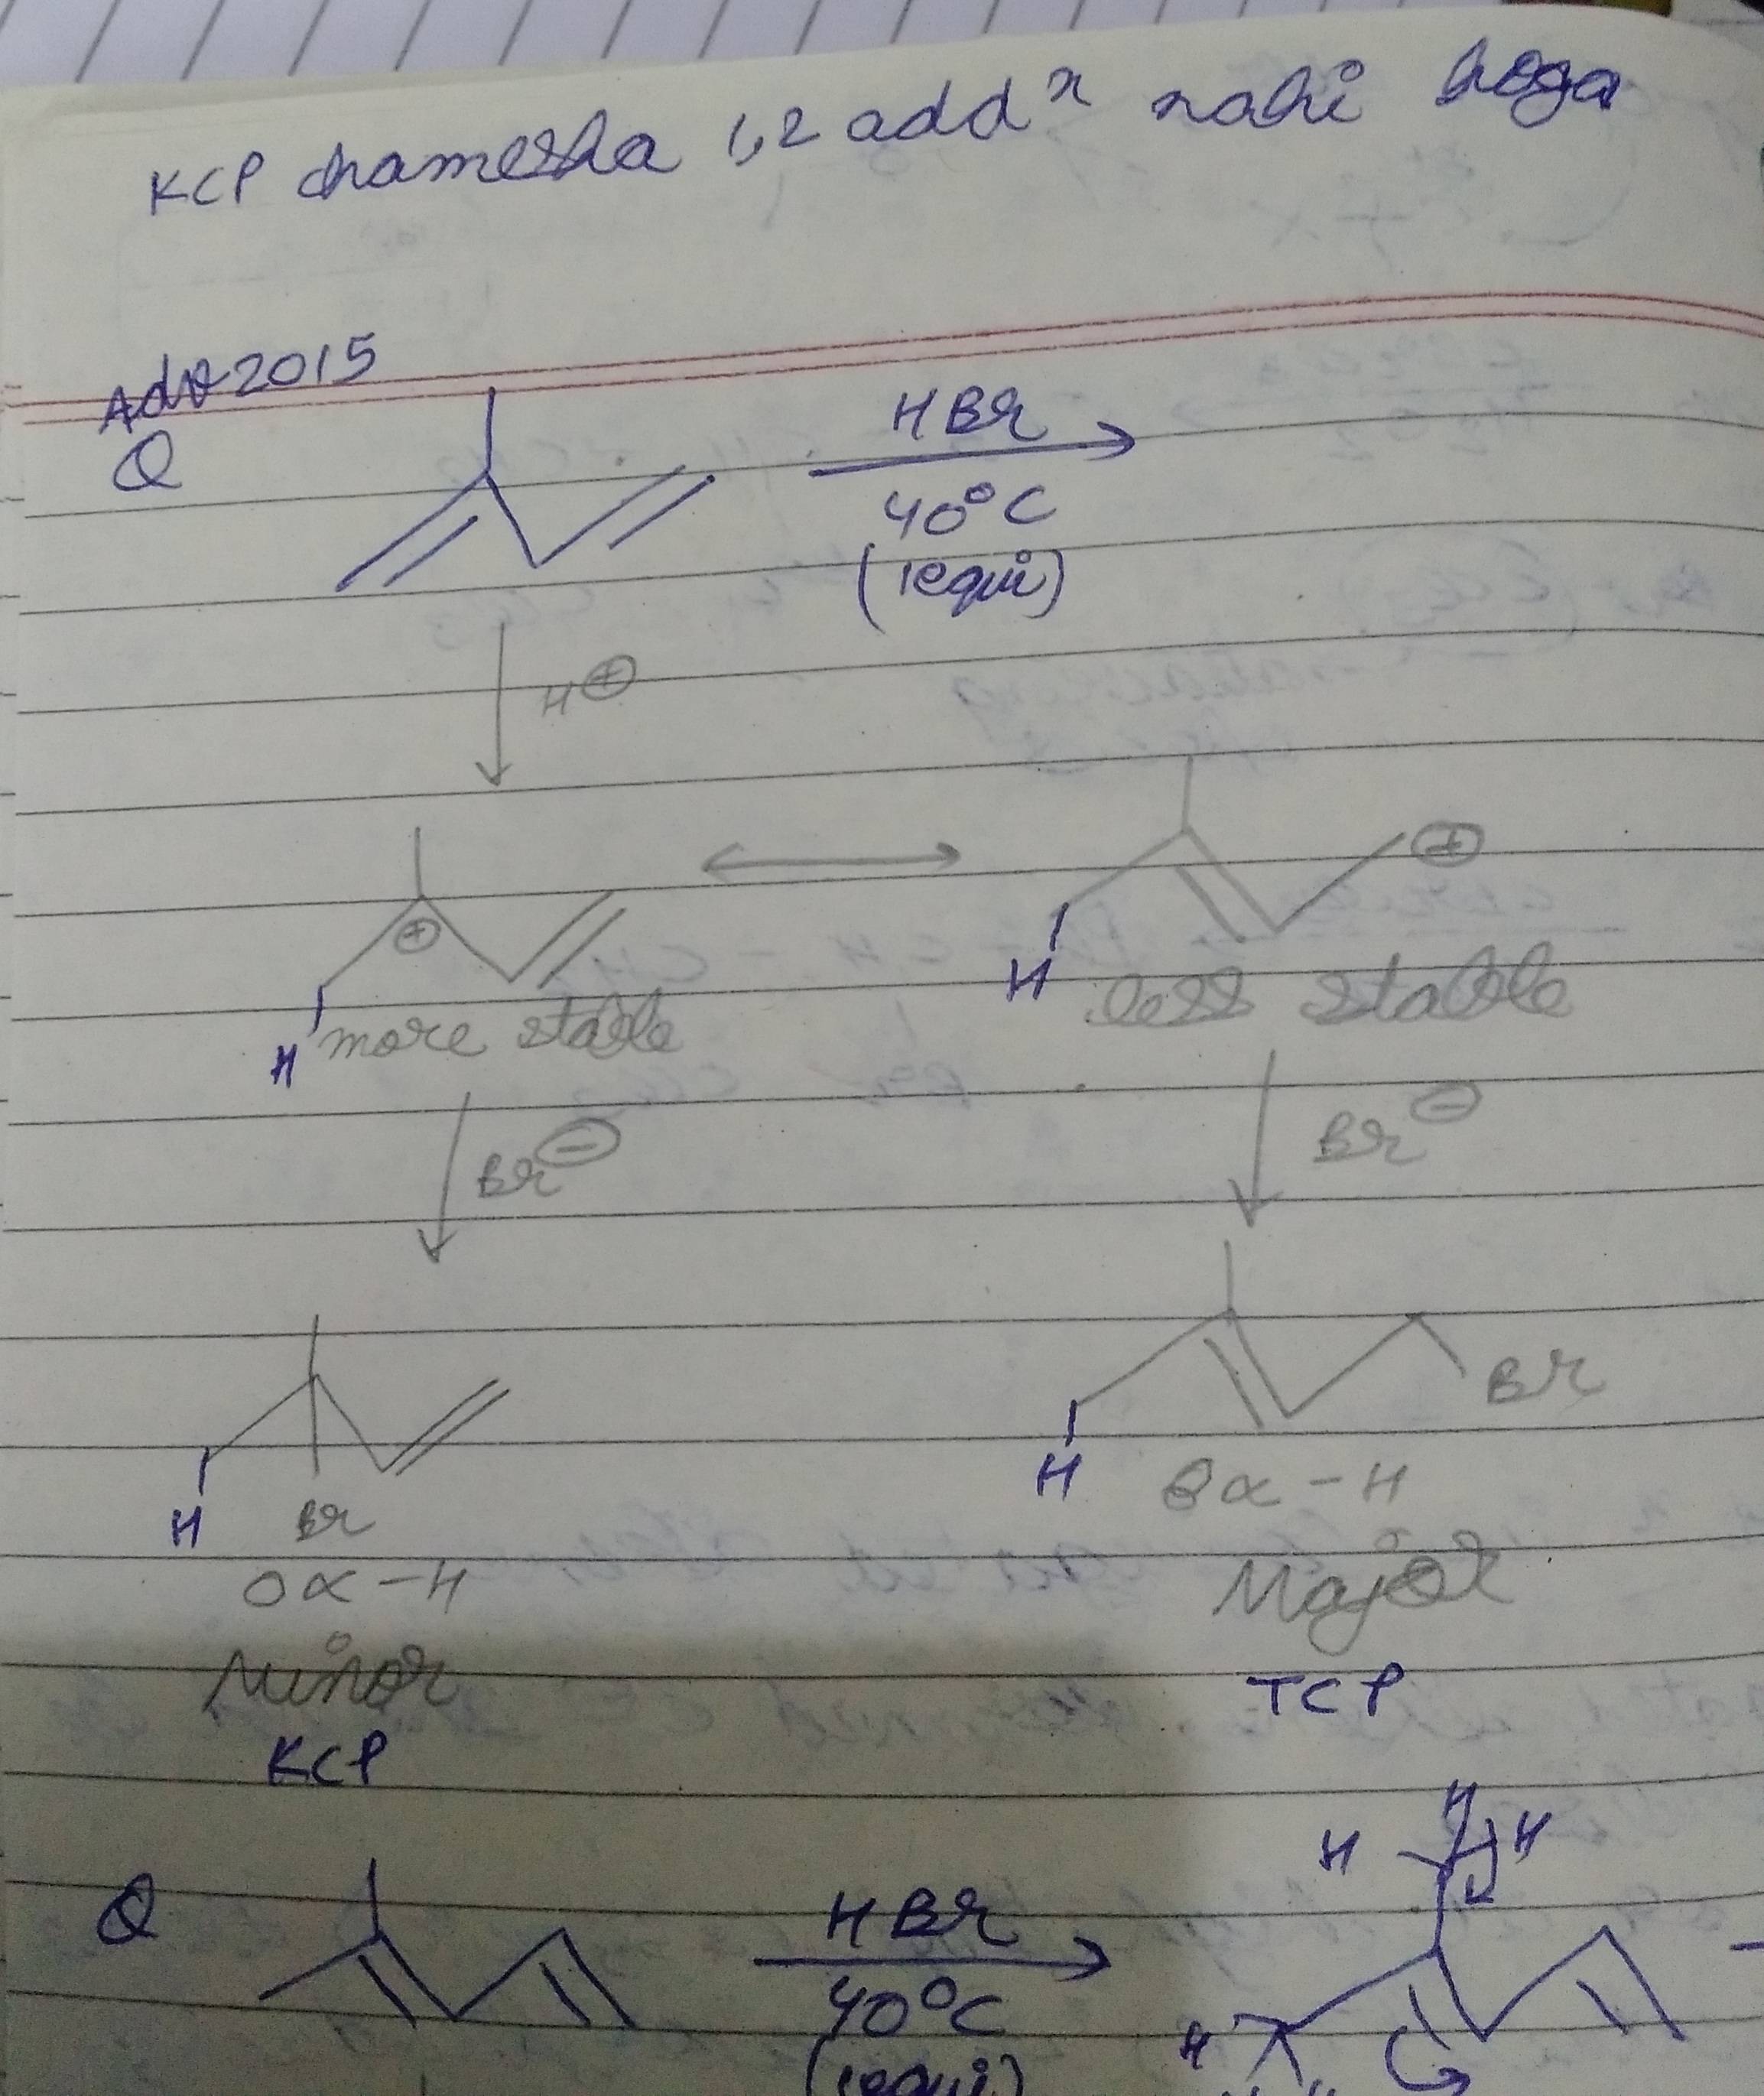 KCP hamesha 1,2 addⁿ nahi hoga
Adv 2015
Q
HBr
40°C
(1equi)
H⊕
⊕
H
more stable
⊕
H
less stable
Br⊖
Br⊖
H
Br
0α-H
Minor
KCP
Br
H
8α-H
Major
TCP
Q
HBr
40°C
(1equi)
H
H
H
H